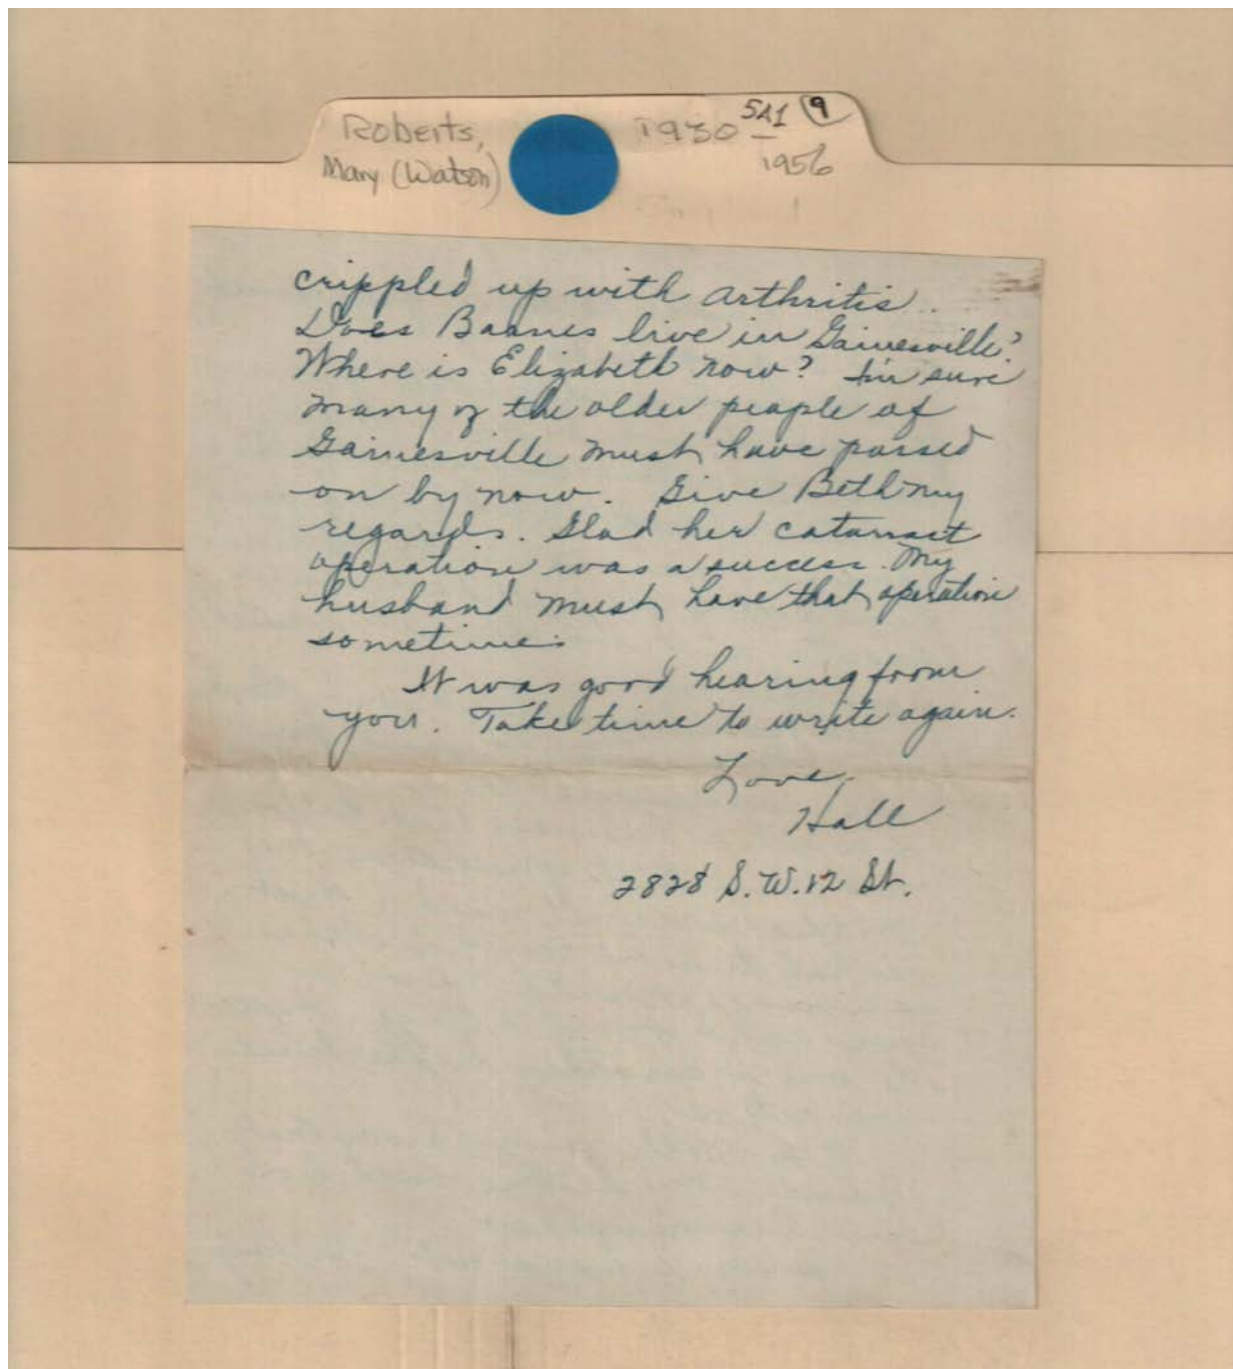 Roberts,
Mary (Watson)
1930 –
1956
5A1 9
crippled up with arthritis.
Does Baanes live in Gainesville?
Where is Elizabeth now? I'm sure
many of the older people of
Gainesville must have passed
on by now. Give Beth my
regards. Glad her cataract
operation was a success. My
husband must have that operation
sometime.
It was good hearing from
you. Take time to write again.
Love,
Hall
2828 S.W. 12 St.